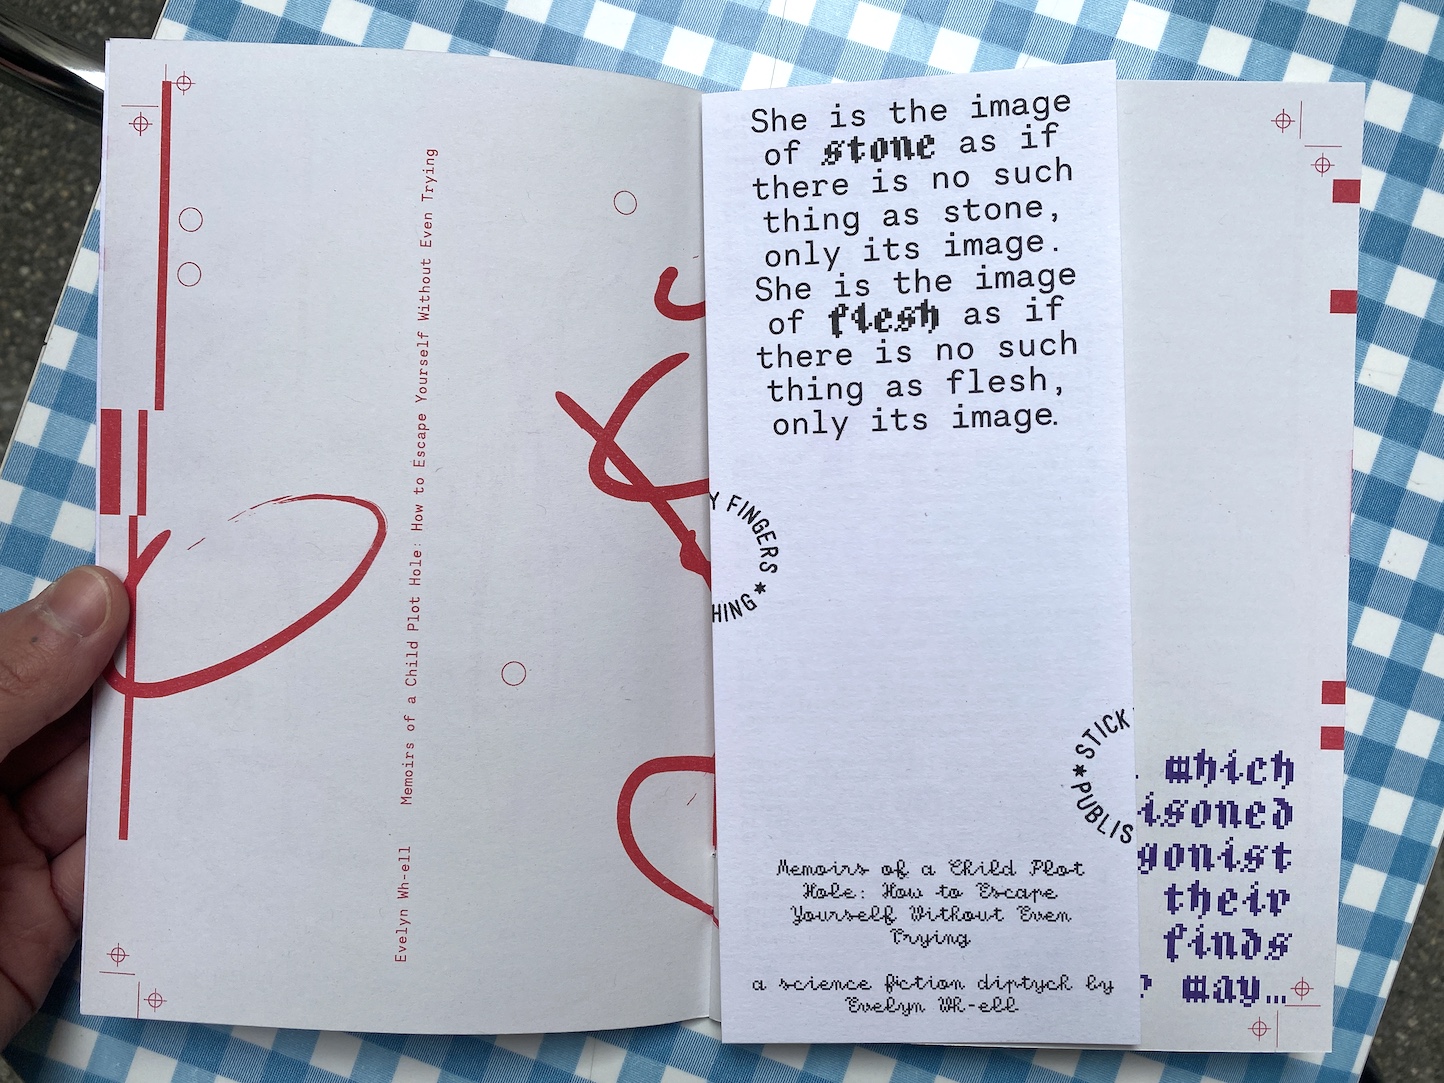 Evelyn Wh-ell Memoirs of a Child Plot Hole: How to Escape Yourself Without Even Trying
She is the image
of stone as if
there is no such
thing as stone,
only its image.
She is the image
of flesh as if
there is no such
thing as flesh,
only its image.
Y FINGERS
HING*
STICK
*PUBLIS
Memoirs of a Child Plot
Hole: How to Escape
Yourself Without Even
Trying
a science fiction diptych by
Evelyn Wh-ell
which
isoned
gonist
their
finds
way...